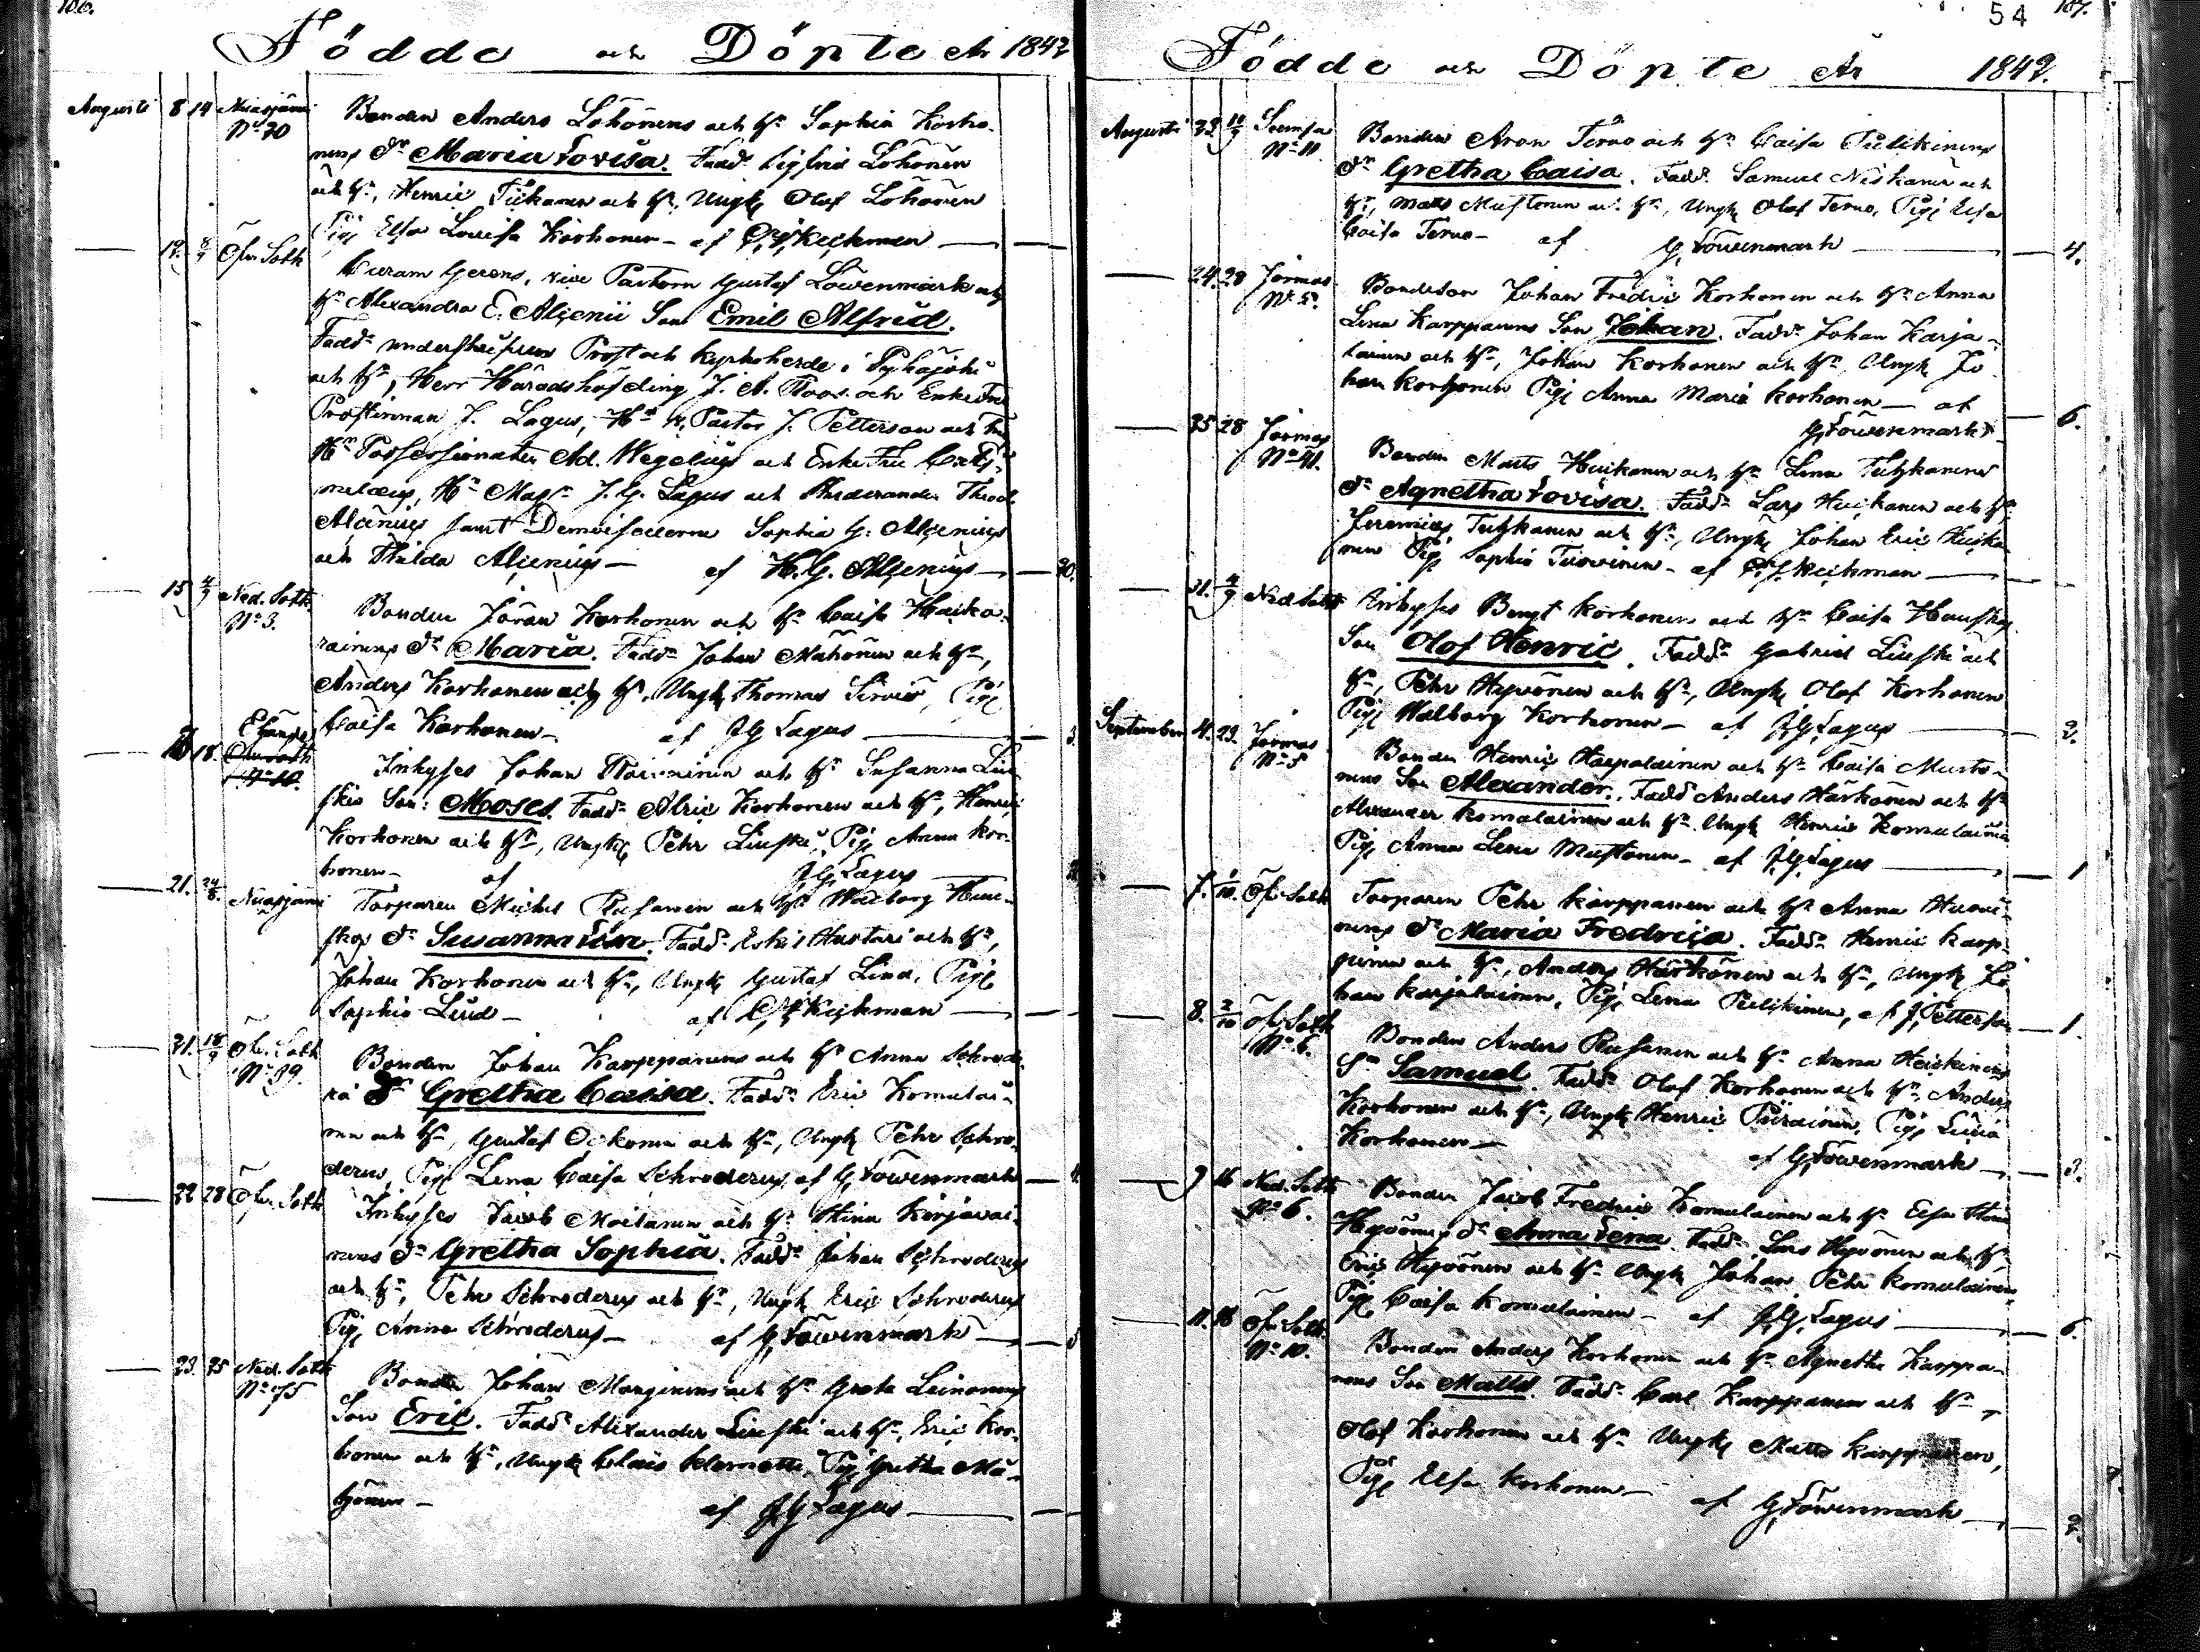 106.
Födde och Döpte År 1842
Augusti 8 14 Nuasjärvi Bonden Anders Löhönens och H:u Sophia Korho-
N:o 20 nens D:r Maria Lovisa. Fadd: Sigfrid Löhönen
och H:u, Henric Tiikanen och H:u, Ungk Olof Löhönen
Pig Elsa Lovisa Korhonen - af Keckman
12. Öfv. Sotk Curam Gerens, vice Pastorn Gustaf Löwenmark och
H:u Alexandra E. Alcenii Son Emil Alfred.
Fadd: underskrifven Prost och Kyrkoherde i Pyhäjoki
och H:u, Herr Häradshöfding J. A. Roos och Enkefru
Prostinnan J. Lagus, H:r v. Pastor J. Petterson och Fru
H:r Possessionaten Ad. Wegelius och Enke Fru
H:r Mag:r J. G. Lagus och Theod.
Alcenius samt Demoisellerne Sophia G. Alcenius
och Thilda Alcenius - af H. G. Alcenius 20.
15 4/9 Ned. Sotk Bonden Jöran Korhonen och H:u Caisa Haika-
N:o 3. rainens D:r Maria. Fadd: Johan Mähönen och H:u,
Anders Korhonen och H:u, Ungk Thomas Sirviö, Pig
Caisa Korhonen - af J G Lagus 3.
18. Inhyses Johan och H:u Susanna Liu-
N:o 10. skis Son: Moses. Fadd: Alric Korhonen och H:u, Henric
Korhonen och H:u, Ungk Pehr Liuski, Pig Anna Kor-
honen - af J G Lagus
21. 24/8. Nuasjärvi Torparen Michel Rusanen och H:u Walborg
D:r Susanna Lisa. Fadd: Eskil Hustari och H:u,
Johan Korhonen och H:u, Ungk Gustaf Lind, Pig
Sophia Lind - af Keckman
21. 18/9 Öfv. Sotk Bonden Johan Karppanens och H:u Anna Schrode-
N:o 29. D:r Gretha Caisa. Fadd: Eric Komulai-
nen och H:u, Gustaf och H:u, Ungk Pehr Schro-
derus, Pig Lena Caisa Schroderus, af G. Löwenmark 4.
22 28 Öfv. Sotk Inhyses Jacob Moilanen och H:u Stina Kirjavai-
nens D:r Gretha Sophia. Fadd: Johan Schroderus
och H:u, Pehr Schroderus och H:u, Ungk Eric Schroderus
Pig Anna Schroderus - af G. Löwenmark 5
23. 25 Ned. Sotk Bonden Johan och H:u Greta Leinonens
N:o 25 Son Eric. Fadd: Alexander Liuski och H:u, Eric Kor-
honen och H:u, Ungk Clais Klemetti, Pig Gretha Mä-
hönen - af J G Lagus
54 107.
Födde och Döpte År 1842.
Augusti 23. Soemsa Bonden Aron Tervo och H:u Caisa Pulkkinens
N:o 11 D:r Gretha Caisa. Fadd: Samuel Niskanen och
H:u, Matts Mustonen och H:u, Ungk Olof Tervo, Pig Elsa
Caisa Tervo - af G. Löwenmark 4.
24. 28 Jormas Bondeson Johan Fredric Korhonen och H:u Anna
N:o 5. Lena Karppanens Son Johan. Fadd: Johan Karja-
lainen och H:u, Johan Korhonen och H:u, Ungk Jo-
han Korhonen Pig Anna Maria Korhonen - af
G. Löwenmark 6.
25 28 Jormas Bonden Matts Huikanen och H:u Lena
N:o 41. D:r Agnetha Lovisa. Fadd: Lars Huikanen och H:u,
Jeremias och H:u, Ungk Johan Eric
Pig Sophia Turvinen - af Keckman
31. 4/9 Ned. Sotk Inhyses Bengt Korhonen och H:u Caisa
Son Olof Henric. Fadd: Gabriel Liuski och
H:u, Pehr Hyvönen och H:u, Ungk Olof Korhonen
Pig Walborg Korhonen - af J G Lagus 2.
September 4. 23. Jormas Bonden Henric Haapalainen och H:u Caisa Musto-
N:o 5 nens Son Alexander. Fadd: Anders Härkönen och H:u
Alexander Komulainen och H:u, Ungk Henric Komulainen
Pig Anna Lena Mustonen - af J G Lagus 1
7. 1/10. Öfv. Sotk Torparen Pehr Karppanen och H:u Anna
nens D:r Maria Fredrica. Fadd: Henric Karp-
och H:u, Anders Härkönen och H:u, Ungk Jo-
han Karjalainen, Pig Lena Pulkkinen, af J. Petterson 1.
8. 2/10 Öfv. Sotk Bonden Anders Rusanen och H:u Anna Heiskinens
N:o 6. S:n Samuel. Fadd: Olof Korhonen och H:u, Anders
Korhonen och H:u, Ungk Henric Piirainen, Pig Lucia
Korhonen - af G. Löwenmark 3.
9 16 Ned. Sotk Bonden Jacob Fredric Komulainen och H:u Elsa Stina
N:o 6. D:r Anna Lena. Fadd: Lars Hyvönen och H:u,
Eric Hyvönen och H:u Ungk Johan Pehr Komulainen,
Pig Caisa Komulainen - af J G Lagus 6.
11. 18 Öfv. Sotk. Bonden Anders Korhonen och H:u Agnetha Karppa-
N:o 10. nens Son Matts. Fadd: Carl Karppanen och H:u,
Olof Korhonen och H:u Ungk Matts Karppanen,
Pig Elsa Korhonen - af G. Löwenmark 2.